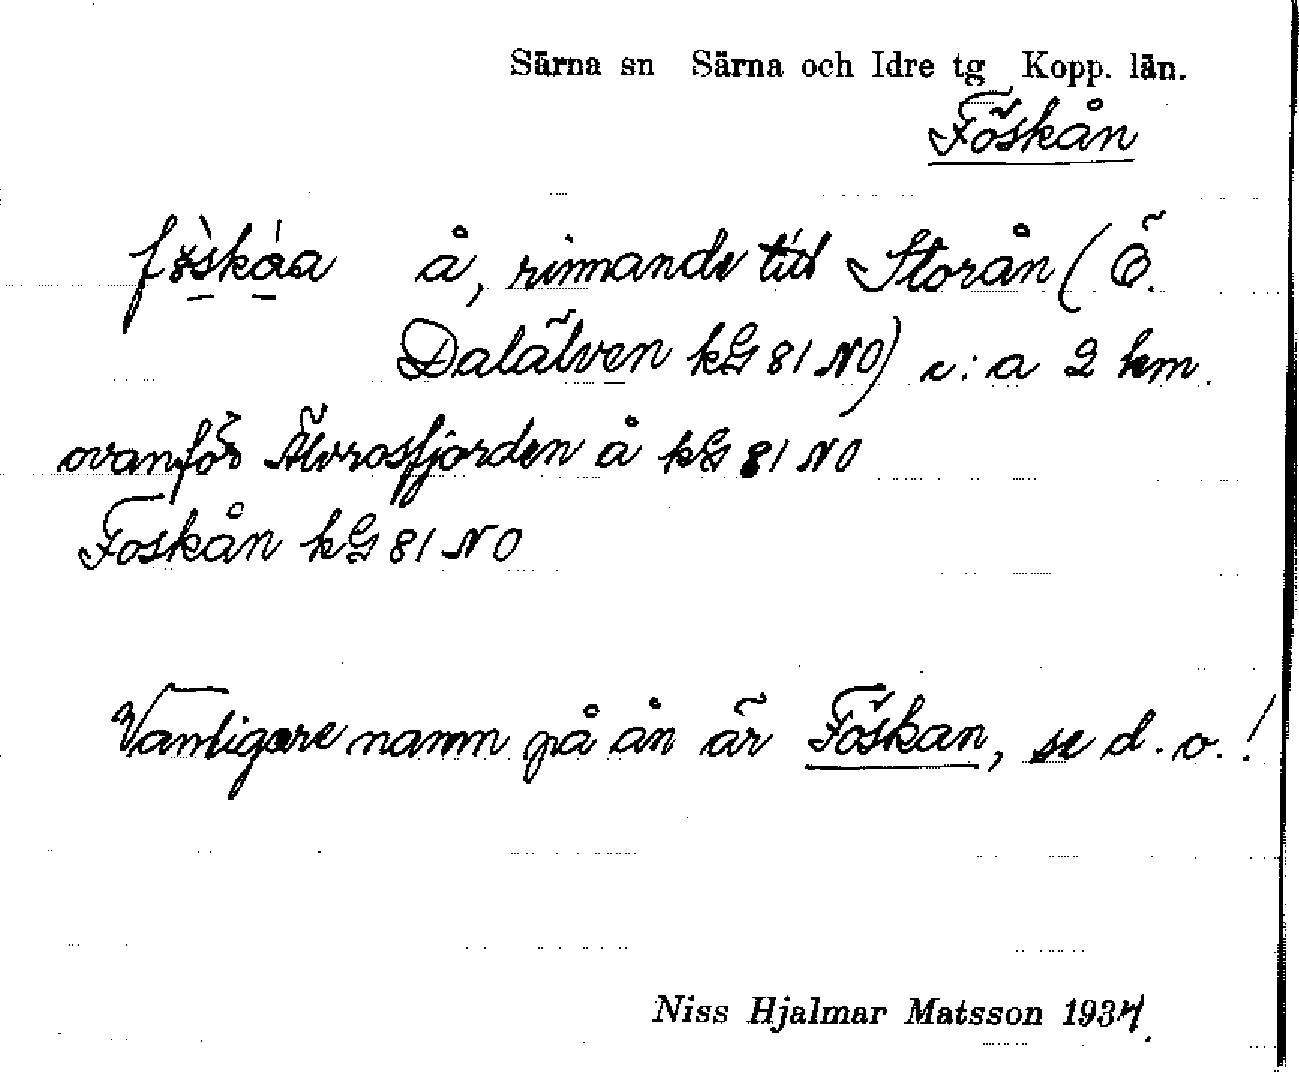 Särna sn Särna och Idre tg Kopp. län.
Föskån
å, rinnande till Storån (Ö.
Dalälven kG 81 NO) c:a 2 km.
ovanför Älvrosfjorden å kG 81 NO
Foskån kG 81 NO
Vanligare namn på ån är Föskan, se d. o.!
Niss Hjalmar Matsson 1934.